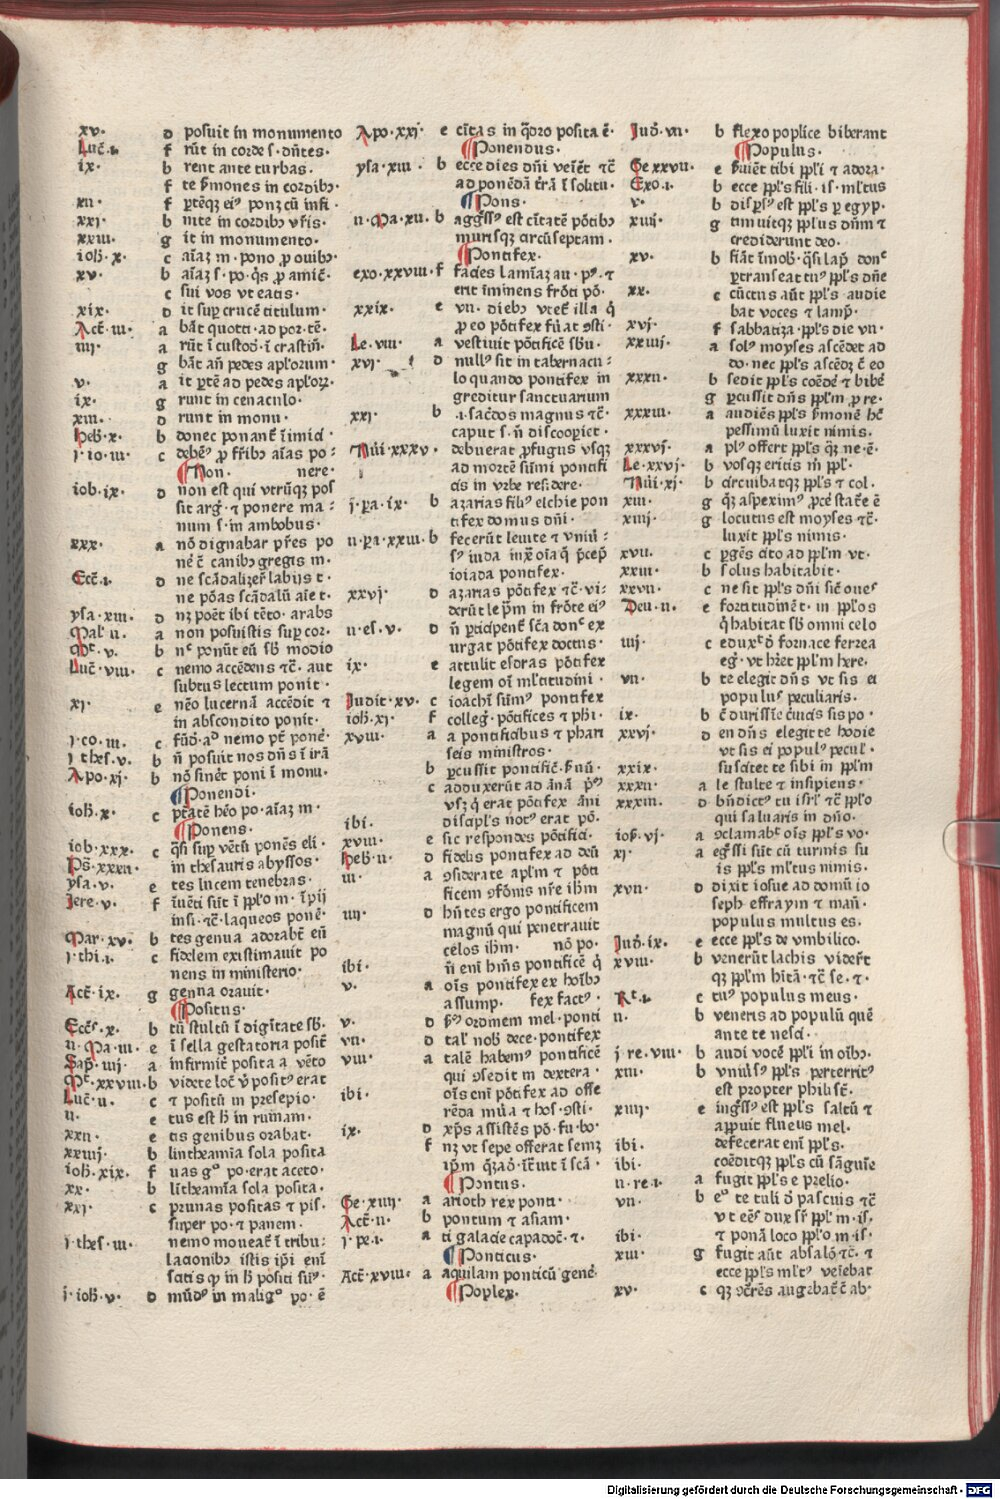 xv. d posuit in monumento
Luc̄.i. f rūt in corde s. dn̄tes.
ix. b rent ante turbas.
f te ẜmones in cordibꝰ.
xii. f ꝑtēqꝫ eiꝰ ponꝫ cū infi.
xxi. b nite in cordibꝰ vr̄is.
xxiii. g it in monumento.
ioh̄.x. c aīaꝫ m. pono ꝓ ouibꝰ.
xv. b aīaꝫ s. po. q̄s ꝓ amic̄.
c sui vos vt eatis.
xix. d it suꝑ crucē titulum.
Act̄.iii. a bāt quoti. ad por. tē.
iiii. a rūt ī custod̄. ī crastiñ.
g bāt añ pedes apl'orum.
v. a it ꝑtē ad pedes apl'oꝝ.
ix. g runt in cenaculo.
xiii. d runt in monu.
Heb̄.x. b donec ponant̄ inimic̄.
j.io.iii. c debēꝰ ꝓ fr̄ibꝰ aīas po-
Non. nere.
iob.ix. d non est qui vtrūqꝫ pos
sit arḡ. ⁊ ponere ma-
num s. in ambobus.
xxx. a nō dignabar pr̄es po
nē c̄ canibꝰ gregis m.
Ecc̄.i. d ne scādalizeī labijs t.
ne pōas scādalū aīe t.
ysa.xiii. d nꝫ poēt ibi tēto. arabs
Mal'.ii. a non posuistis suꝑ cor.
Mt̄.v. b nec ponūt eū sb̄ modio
Luc̄.viii. c nemo accēdens ⁊c̄. aut
subtus lectum ponit.
xj. e nēo lucernā accēdit ⁊
in abscondito ponit.
j.co.iii. c fūd̄.ad nemo pt̄ ponē.
j thes.v. b n̄ posuit nos dn̄s ī irā
Apo.xj. b nō sinēt poni ī monu.
Ponendi.
ioh̄.x. c ptātē hēo po. aīaꝫ m.
Ponens.
iob.xxx. c q̄si suꝑ vētū ponēs eli.
Ps̄.xxxii. in thesauris abyssos.
ysa.v. e tes lucem tenebras.
Jere.v. f īuēti sūt ī pplo m. īpij
insi. ⁊c̄. laqueos ponē.
Mar.xv. b tes genua adorabāt eū
j.thi.i. c fidelem existimauit po
nens in ministerio.
Act̄.ix. g genua orauit.
Positus.
Ecc̄s.x. b tū stultū ī dignitate sb̄.
ii.Ma.iii. e ī sella gestatoria posit̄
Sap̄.iiij. a infirmit̄ posita a vēto
Mt̄.xxviii. b videte loc̄ v̄ positꝰ erat
Luc̄.ii. c ⁊ positū in presepio.
ii. e tus est h̄ in ruinam.
xxii. e tis genibus orabat.
xxiiij. b lintheamia sola posita
ioh̄.xix. f uas gꝰ po. erat aceto.
xx. b lītheamīa sola posita.
xxj. c prunas positas ⁊ pis.
super po. ⁊ panem.
j.thes.iii. nemo moueat̄ ī tribu-
lationibꝰ istis ip̄i enī
scitis ꝙ in h̄ positi suꝰ.
j.ioh̄.v. d mūdꝰ in maligꝰ po. ē
Apo.xxj. e cītas in q̄dro posita ē.
Ponendus.
ysa.xiii. b ecce dies dn̄i veiēt ⁊c̄
ad ponēdā tr̄ā ī solitu.
Pons.
ii.Ma.xii. b aggssꝰ est cītatē pōtibꝰ
murisqꝫ arcūseptam.
Pontifex.
exo.xxviii. f facies lamiaꝫ au. pꝰ. ⁊
erit iminens frōti pō.
xxix. e vn. diebꝰ vtet̄ illa q̄
ꝓ eo pōtifex fūat ꝯsti.
Le.viii. a vestiuit pōtificē sb̄u.
xvj. d nullꝰ sit in tabernacu-
lo quando pontifex in
greditur sanctuarium
xxj. b .i. sac̄dos magnus ⁊c̄.
caput s. n̄ discooꝑiet.
Nūi.xxxv. debuerat ꝓfugus vsqꝫ
ad mortē sūmi pontifi
cis in vrbe residere.
j.pa.ix. b azarias filiꝰ elchie pon
tifex domus dn̄i.
ii.pa.xxiii. b fecerūt leuite ⁊ vniu-
sꝰ iuda inx̄ oīa q̄ p̄cep̄
ioiada pontifex.
xxvj. d azarias pōtifex ⁊c̄. vi-
derūt lep̄m in frōte eiꝰ
ii.es.v. d n̄ ꝑticipent̄ sc̄a donc̄ ex
urgat pōtifex doctus.
ix. e attulit esdras pōtifex
legem oī ml'titudini.
Judit.xv. c ioachī sūmꝰ pontifex
ioh̄.xj. f colleḡ. pōtifices ⁊ ph̄i.
xviii. a a pontificibus ⁊ phari
seis ministros.
b ꝑcussit pontific̄. ẜuū.
c adduxerūt ad ānā p̄ꝰ
vsꝫ q̄ erat pōtifex āni
ibi. discipl's notꝰ erat pō.
xviii. e sic respondes pōtifici.
Heb̄.ii. d fidelis pontifex ad deū
iii. a ꝯsiderate apl'm ⁊ pōti
ficem ꝯfōnis nr̄e ih̄m
iiij. d hn̄tes ergo pontificem
magnū qui penetrauit
celos ih̄m. nō po.
ibi. n̄ enī hēmꝰ pontificē q̄
v. a oīs pontifex ex hoībꝰ
assump. fex factꝰ.
v. d ẜꝰ ordinem mel. ponti
vii. d tal' nob̄ dece. pontifex
viii. a talē habemꝰ pontificē
qui ꝯsedit in dextera.
ibi. oīs enī pōtifex ad offe
rēda mūa ⁊ hos. ꝯsti.
ix. d xp̄s assistēs pō. fu. bo.
f nꝫ vt sepe offerat semꝫ
ip̄m q̄ꝫad. ītuit ī scā.
Pontus.
Ge.xiiij. a arioth rex ponti.
Act̄.ii. b pontum ⁊ asiam.
j.pe.i. a ti galacie capadoc̄. ⁊.
Ponticus.
Act̄.xviii. a aquilam ponticū genē.
Poplex.
Jud̄.vii. b flexo poplice biberant
Populus.
Ge.xxvii. e ẜuiēt tibi ppl'i ⁊ adora.
Exo.i. b ecce ppl's fili. is. ml'tus
v. b disꝑsꝰ est ppl's ꝑ egyp.
xiiij. g timuitqꝫ pplus dn̄m ⁊
crediderunt deo.
xv. b fiāt īmob̄. q̄si lap̄ donc̄
ꝑtranseat tuꝰ ppl's dn̄e
xx. e cūctus aūt ppl's audie
bat voces ⁊ lamp̄.
xvj. f sabbatiza. ppl's die vn.
xxiiij. a solꝰ moyses ascēdet ad
do. nec ppl's ascēdꝫ c̄ eo
xxxii. b sedit ppl's coēdē ⁊ bibē
g ꝑcussit dn̄s ppl'm ꝓ re.
xxxiii. a audiēs ppl's ẜmonē hc̄
pessimū luxit nimis.
xxxvj. a plꝰ offert ppl's q̄ꝫ ne. ē.
Le.xxvj. b vosqꝫ eritis m̄ ppl'.
Nūi.xj. b circuibatqꝫ ppl's ⁊ col.
xiii. g q̄ꝫ aspeximꝰ ꝓcē statē ē
xiiij. g locutus est moyses ⁊c̄.
luxit ppl's nimis.
xvii. c ꝑgēs cito ad ppl'm vt.
xxiii. b solus habitabit.
xxvii. c ne sit ppl's dn̄i sic̄ oues
Deu.ii. e fortitudinē t. in ppl'os
q̄ habitāt sb̄ omni celo
iiij. c eduxt̄ d̄ fornace ferrea
eḡ. vt hr̄et ppl'm here.
vii. b te elegit dn̄s vt sis ei
populuꝰ peculiaris.
ix. b c̄ durissīe c̄uicis sis po.
xxvj. d en dn̄s elegit te hodie
vt sis ei populꝰ pecul'.
xxix. suscitet te sibi in ppl'm
xxxii. a le stulte ⁊ insipiens.
xxxiii. d bn̄dictꝰ tu isrl' ⁊c̄ ppl'o
qui saluaris in dn̄o.
iosꝰ.vj. a ꝯclamabt̄ oīs ppl's vo.
xj. a eḡssi sūt cū turmis su
is ppl's ml'tus nimis.
xvii. d dixit iosue ad domū io
seph effraym ⁊ man̄.
populus multus es.
Jud̄.ix. e ecce ppl's de vmbilico.
xviii. b venerūt lachis viderūt
qꝫ ppl'm hītā. ⁊c̄ se. ⁊.
Rt̄.i. c tuꝰ populus meus.
ii. b veneris ad populū quē
ante te nesci.
j re.viii. b audi vocē ppl'i in oībꝰ.
xiii. b vniūsꝰ ppl's perterritꝰ
est propter philist̄.
xiiij. e inḡssꝰ est ppl's saltū ⁊
apparuit fluens mel.
ibi. defecerat enī ppl's.
ibi. coēditqꝫ ppl's cū sāguīe
ii.re.i. a fugit ppl's e prelio.
vii. b eꝰ te tuli d̄ pascuis ⁊c̄
vt eēs dux sr̄ ppl' m. is.
ibi. ⁊ ponā loco ppl'o m. is.
xiii. g fugit aūt absalō. ⁊c̄. ⁊
ecce ppl's ml'tꝰ veiebat
xv. c qꝫ ꝯcrēs augebat̄ c̄ ab.
Digitalisierung gefördert durch die Deutsche Forschungsgemeinschaft - DFG